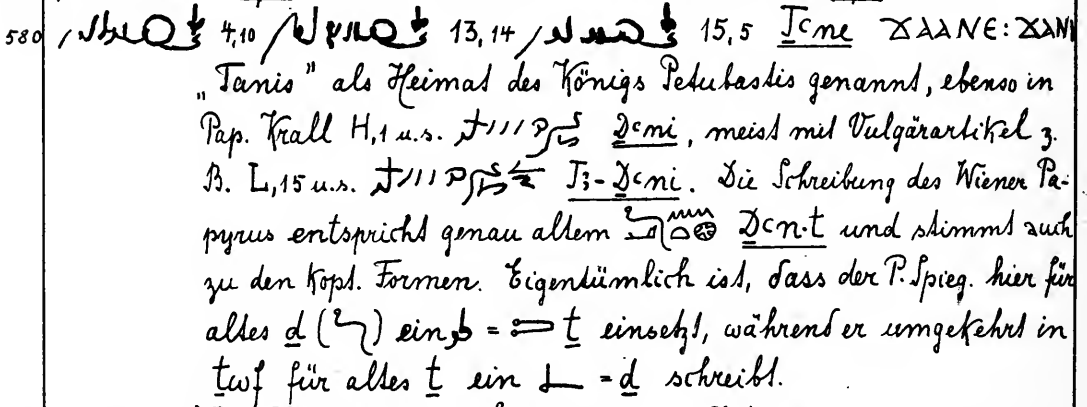 580 4,10 / 13,14 / 15,5 Ṯcne ϪΑΑΝΕ: ϪΑΝΙ
„Tanis" als Heimat des Königs Petubastis genannt, ebenso in
Pap. Krall H,1 u.s. Ḏcni, meist mit Vulgärartikel z.
B. L,15 u.s. Tꜣ-Ḏcni. Die Schreibung des Wiener Pa-
pyrus entspricht genau altem 𓆓𓂝𓈖𓏏𓊖 Ḏcn.t und stimmt auch
zu den kopt. Formen. Eigentümlich ist, dass der P. Spieg. hier für
altes ḏ (𓆓) ein = 𓍿 ṯ einsetzt, während er umgekehrt in
ṯwf für altes ṯ ein = ḏ schreibt.